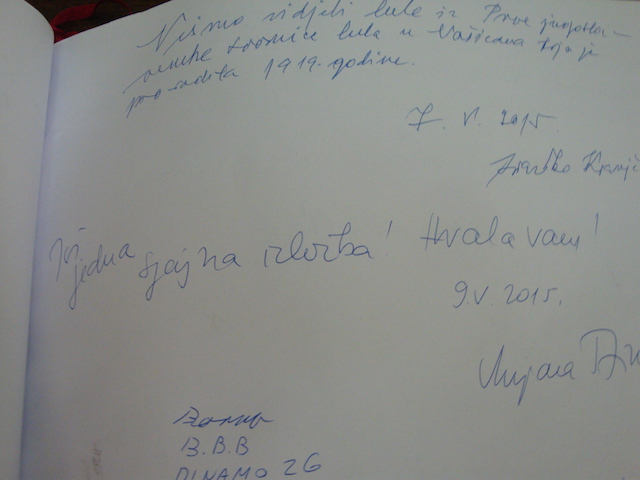 Nismo vidjeli lule iz Prve jugosla-
venske tvornice lula u Našicama koja je
proradila 1919. godine.
7. V. 2015
Zvarko Kranj
Još jedna sjajna izložba! Hvala vam!
9.V. 2015.
Mirjana
B.B.B
DINAMO 26